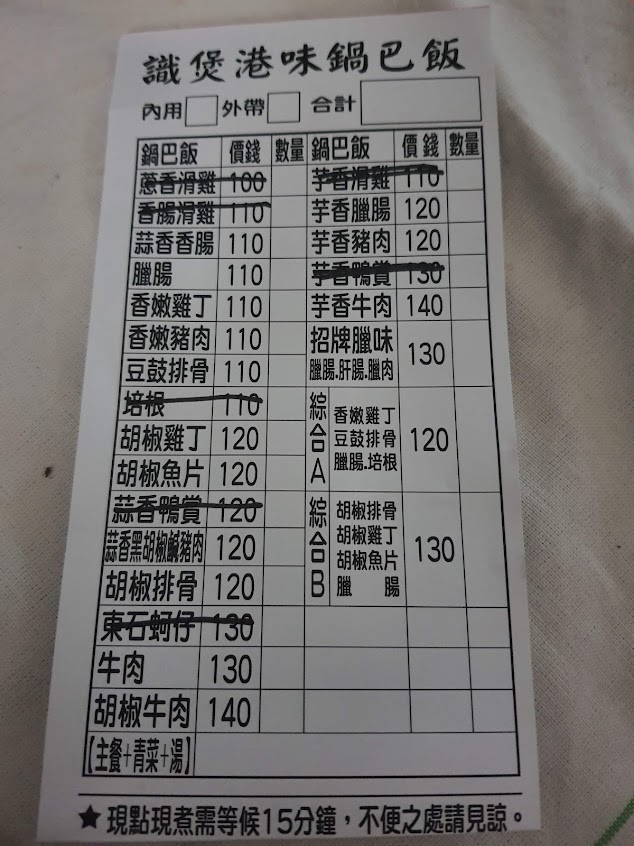 識煲港味鍋巴飯
內用 外帶 合計
鍋巴飯 價錢 數量 鍋巴飯 價錢 數量
蔥香滑雞 100 芋香滑雞 110
香腸滑雞 110 芋香臘腸 120
蒜香香腸 110 芋香豬肉 120
臘腸 110 芋香鴨賞 130
香嫩雞丁 110 芋香牛肉 140
香嫩豬肉 110 招牌臘味 130
豆鼓排骨 110 臘腸.肝腸.臘肉
培根 110 綜合A 香嫩雞丁 120
胡椒雞丁 120 豆鼓排骨
胡椒魚片 120 臘腸.培根
蒜香鴨賞 120 綜合B 胡椒排骨 130
蒜香黑胡椒鹹豬肉 120 胡椒雞丁
胡椒排骨 120 胡椒魚片
東石蚵仔 130 臘腸
牛肉 130
胡椒牛肉 140
【主餐+青菜+湯】
★現點現煮需等候15分鐘,不便之處請見諒。